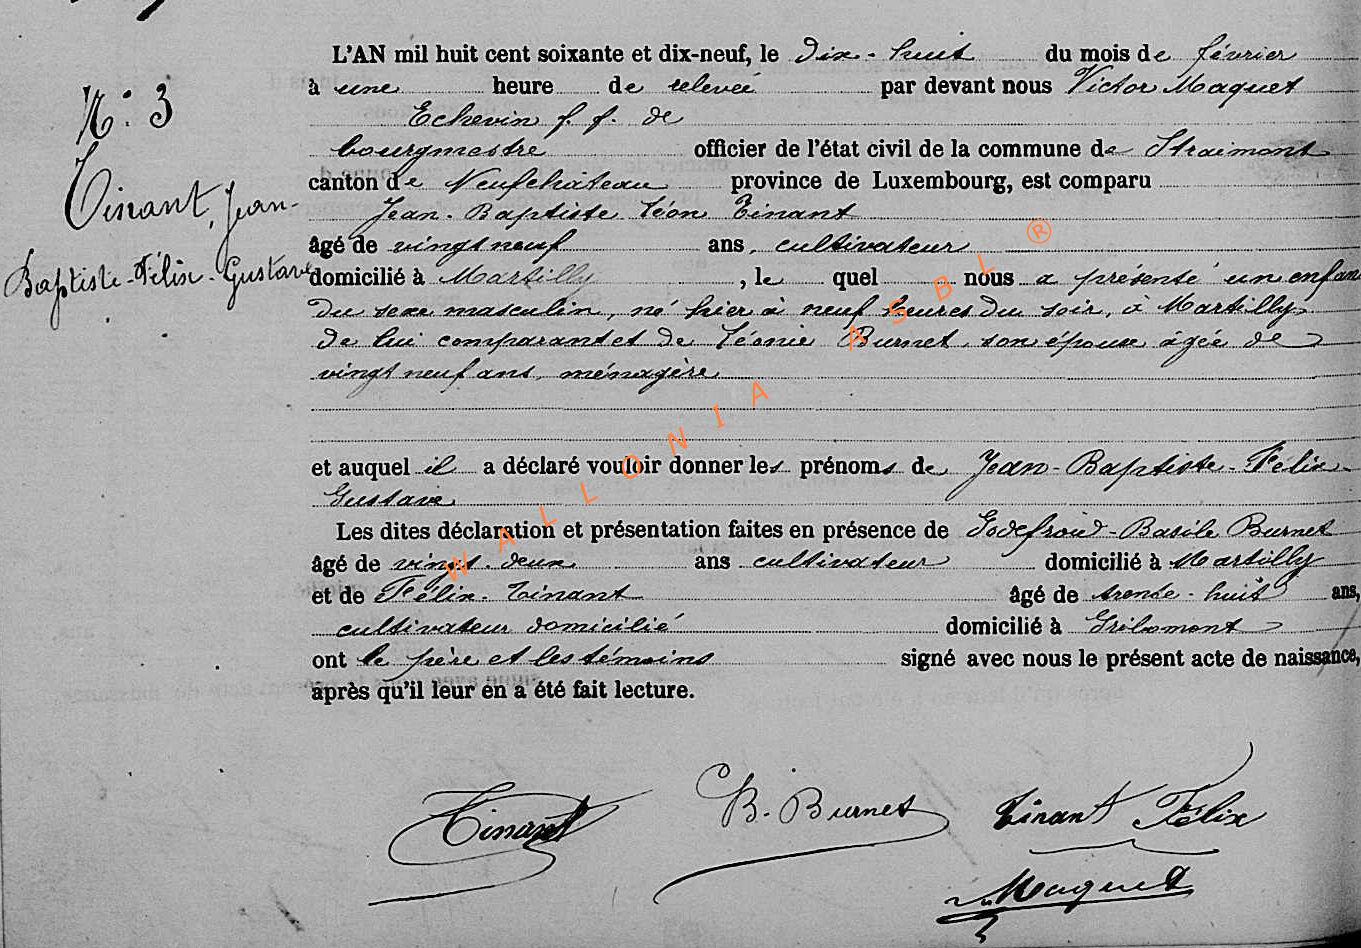 N.° 3
Tinant, Jean-
Baptiste-Félix-Gustave
L'AN mil huit cent soixante et dix-neuf, le dix-huit du mois de février
à une heure de relevée par devant nous Victor Maquet
Echevin f. f. de
bourgmestre officier de l'état civil de la commune de Straimont
canton de Neufchâteau province de Luxembourg, est comparu
Jean-Baptiste Léon Tinant
âgé de vingt neuf ans, cultivateur
domicilié à Martilly, le quel nous a présenté un enfan
du sexe masculin, né hier à neuf heures du soir, à Martilly
de lui comparant et de Léonie Burnet, son épouse âgée de
vingt neuf ans, ménagère
et auquel il a déclaré vouloir donner les prénoms de Jean-Baptiste-Félix-
Gustave
Les dites déclaration et présentation faites en présence de Godefroid-Basile Burnet
âgé de vingt-deux ans cultivateur domicilié à Martilly
et de Félix-Tinant âgé de trente-huit ans,
cultivateur domicilié domicilié à Gribomont
ont le père et les témoins signé avec nous le présent acte de naissance,
après qu'il leur en a été fait lecture.
Tinant B. Burnet Tinant Félix
Maquet
WALLONIA ASBL ®